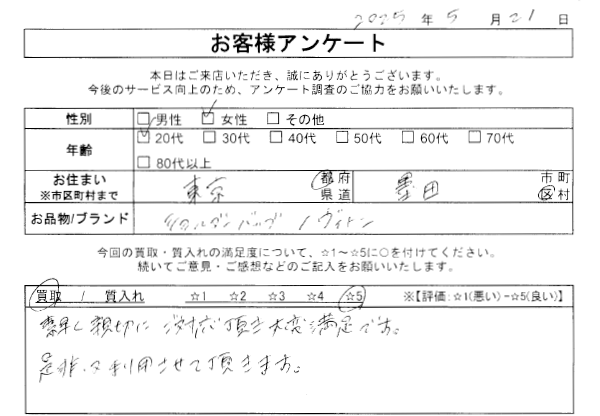 2025年5月21日
お客様アンケート
本日はご来店いただき、誠にありがとうございます。
今後のサービス向上のため、アンケート調査のご協力をお願いいたします。
性別 □男性 ☑女性 □その他
年齢 ☑20代 □30代 □40代 □50代 □60代 □70代
□80代以上
お住まい 東京 都府 墨田 市町
※市区町村まで 県道 区村
お品物/ブランド ショルダーバッグ / ヴィトン
今回の買取・質入れの満足度について、☆1～☆5に○を付けてください。
続いてご意見・ご感想などのご記入をお願いいたします。
買取 / 質入れ ☆1 ☆2 ☆3 ☆4 ☆5 ※【評価:☆1(悪い)-☆5(良い)】
素早く親切にご対応頂き大変満足です。
是非又利用させて頂きます。